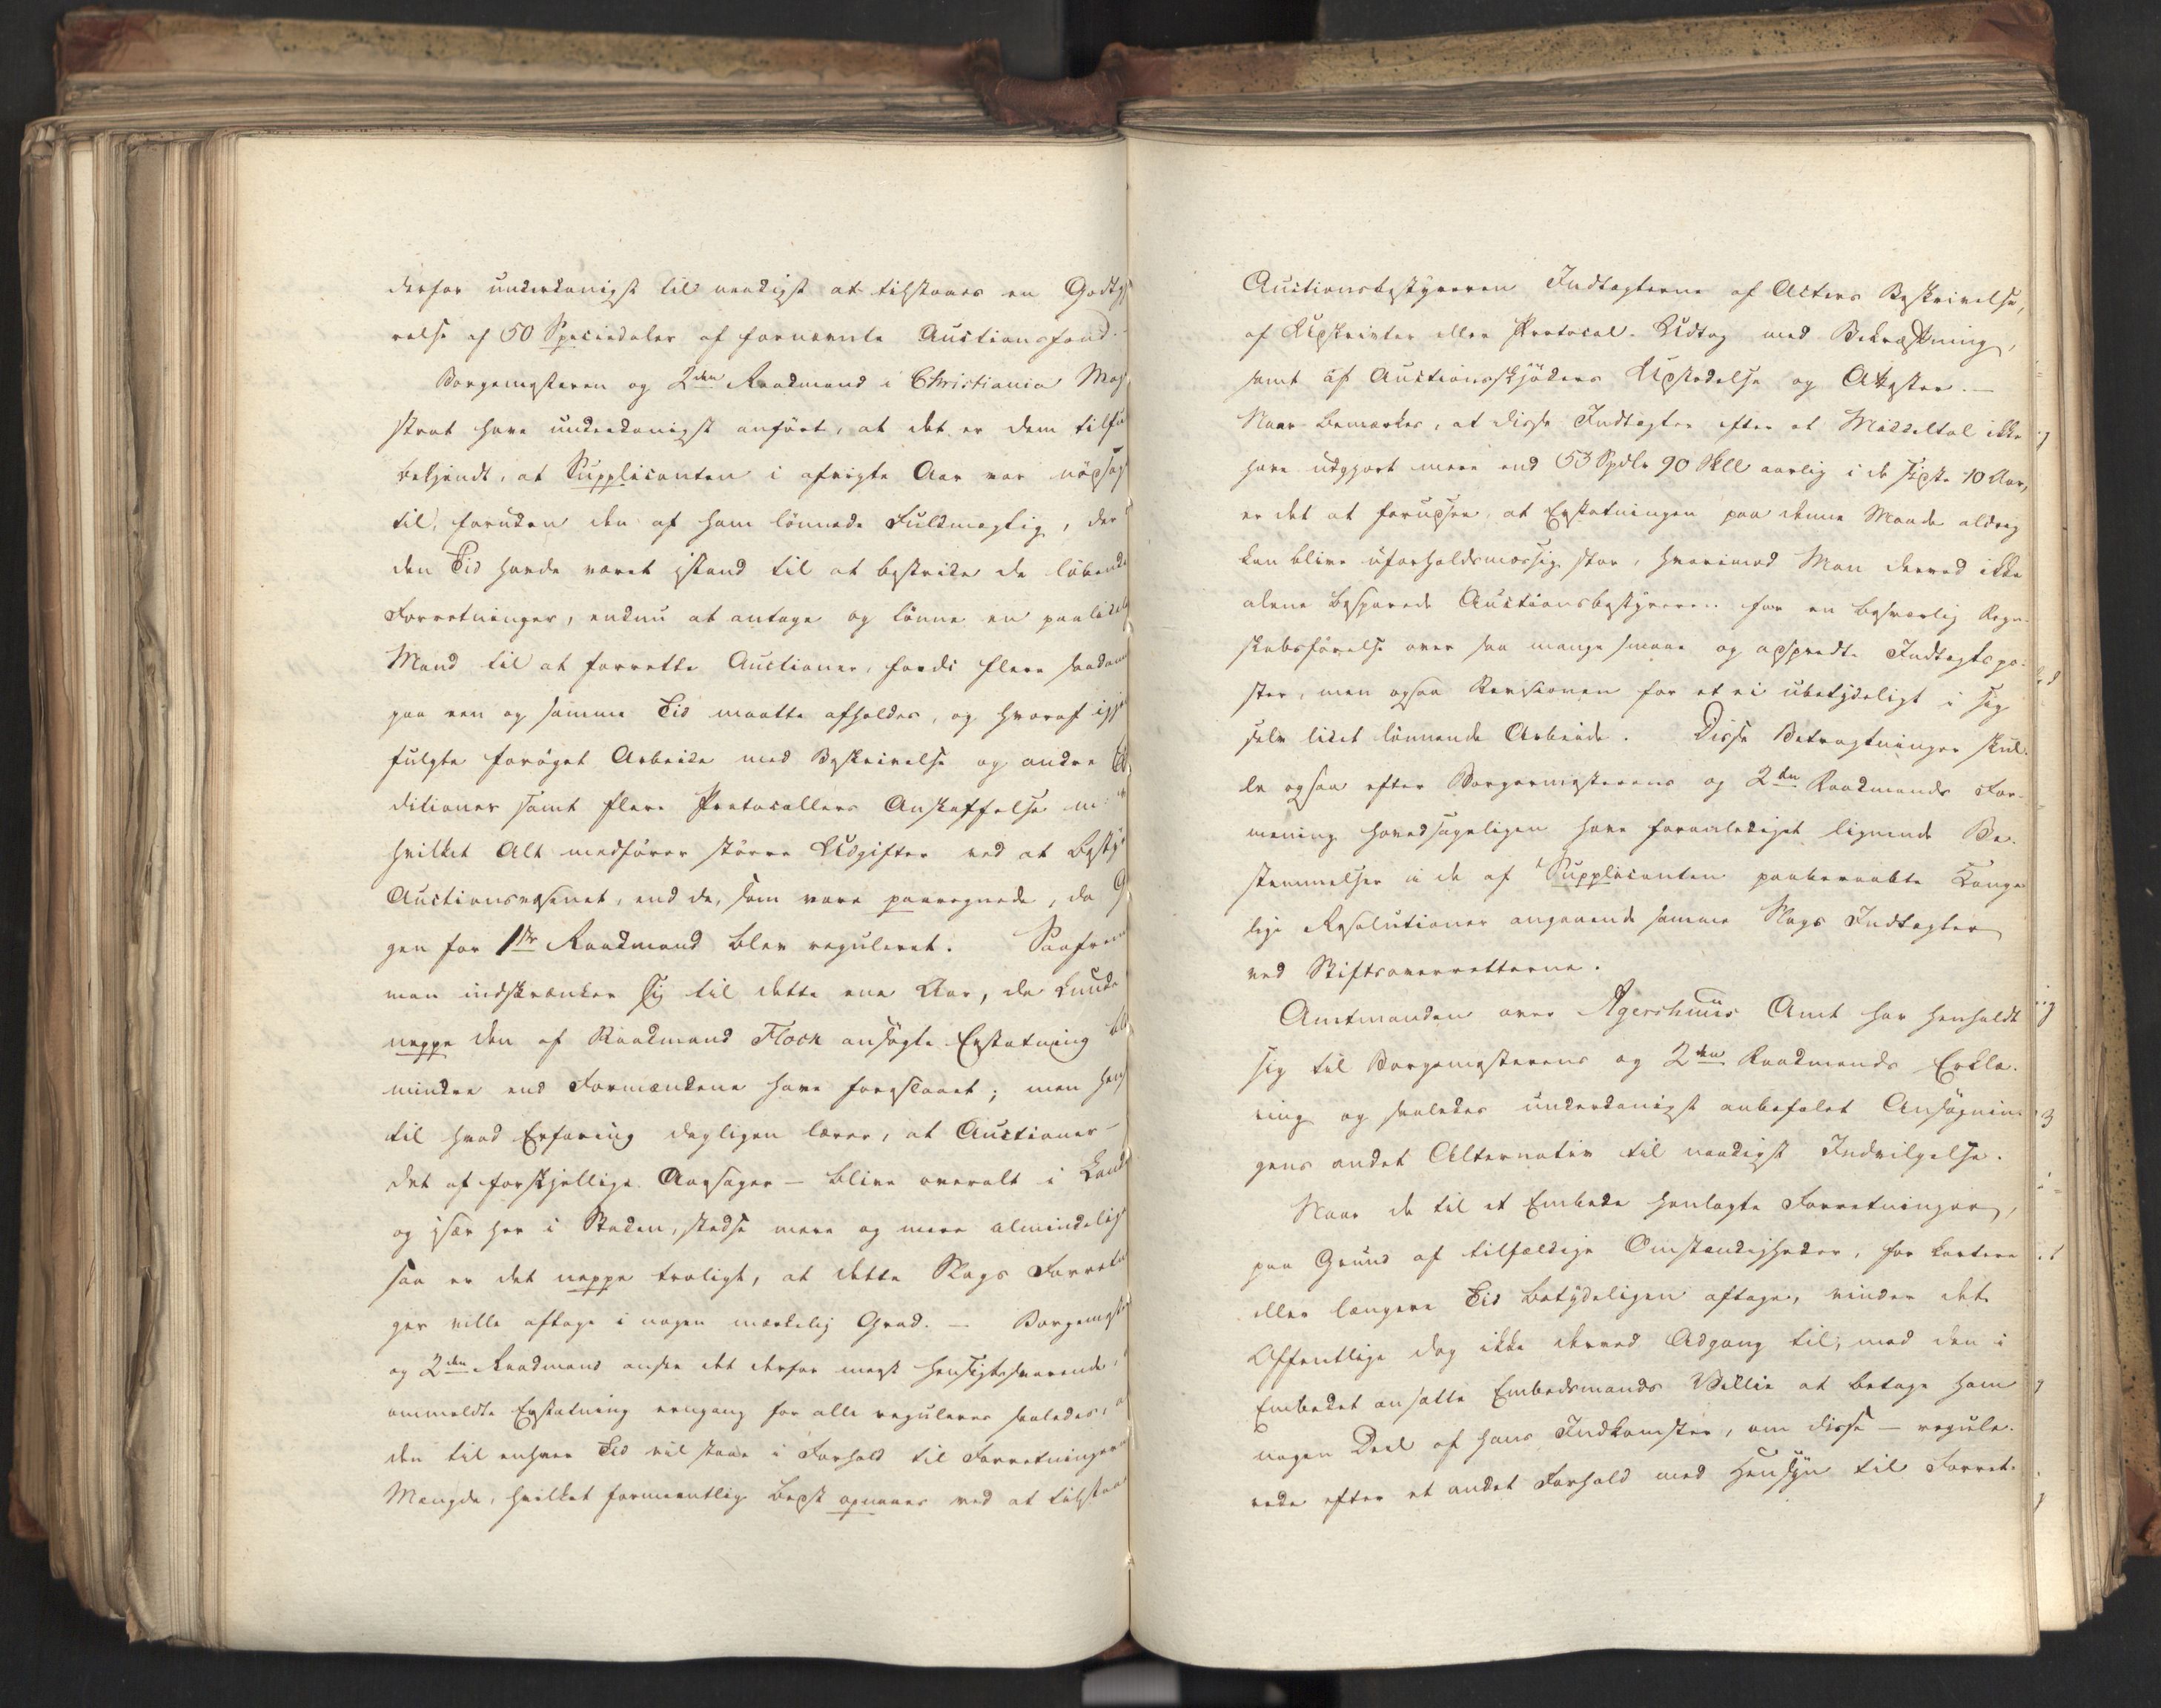 derfor underdanigst til naadigst at tilstaaes en Godtgj
relse af 50 Speciedaler af fornævnte Auctionsfond.
Borgemesteren og 2den Raadmand i Christiania Mag
strat have underdanigst anført, at det er dem tilfu
bekjendt, at Supplicanten i afvigte Aar var nødsag
til, foruden den af ham lønnede Fuldmægtig, der
den Tid havde været istand til at bestride de løbende
Forretninger, endnu at antage og lønne en paalidel
Mand til at forrette Auctioner, fordi flere saadann
paa een og samme Tid maatte afholdes, og hvoraf igje
fulgte forøget Arbeide med Beskrivelse og andre Ex
ditioner samt flere Protocollers Anskaffelse m:
hvilket Alt medfører større Udgifter ved at besty
Auctionsvæsenet, end de, som vare paaregnede, da G
gen for 1ste Raadmand blev reguleret. Saafrem
man indskrænker sig til dette ene Aar, da kunde
neppe den af Raadmand Flock ansøgte Erstatning bli
mindre end Formændene have foreslaaet; men hen
til hvad Erfaring dagligen lærer, at Auctioner –
det af forskjellige Aarsager – blive overalt i Land
og især her i Staden, stedse mere og mere almindelig
saa er det neppe troligt, at dette Slags Forretn
ger ville aftage i nogen mærkelig Grad. – Borgemest
og 2den Raadmand ansee det derfor meest hensigtssvarende,
ommeldte Erstatning eengang for alle reguleres saaledes, a
den til enhver Tid vil staae i Forhold til Forretningern
Mængde, hvilket formeentlig bedst opnaaes ved at tilstaa
Auctionsbestyreren Indtægterne af Acters Beskrivelse,
af Udskrivter eller Protocol-Udtog med Bekræftning,
samt af Auctionsskjøders Udstedelse og Attester. –
Naar bemærkes, at disse Indtægter efter et Middeltal ikke
have udgjort mere end 53 Spdlr 90 Skll aarlig i de sidste 10 Aar,
er det at forudsee, at Erstatningen paa denne Maade aldrig
kan blive uforholdsmæssig stor, hvorimod Man derved ikke
alene besparede Auctionsbestyreren for en besværlig Regn-
skabsførelse over saa mange smaae og adspredte Indtægtspo-
ster, men ogsaa Revisionen for et ei ubetydeligt i sig
selv lidet lønnende Arbeide. Disse Betragtninger skul-
le ogsaa efter Borgermesterens og 2den Raadmands For-
mening hovedsageligen have foranlediget lignende Be-
stemmelser i de af Supplicanten paaberaabte Konge-
lige Resolutioner angaaende samme Slags Indtægter
ved Stiftsoverretterne.
Amtmanden over Agershuus Amt har henholdt
sig til Borgemesterens og 2den Raadmands Erklæ-
ring og saaledes underdanigst anbefalet Ansøgnin-
gens andet Alternativ til naadigst Indvilgelse.
Naar de til et Embede henlagte Forretninger,
paa Grund af tilfældige Omstændigheder, for kortere
eller længere Tid betydeligen aftage, vinder det
Offentlige dog ikke derved Adgang til, mod den i
Embedet ansatte Embedsmands Villie at betage ham
nogen Deel af hans Indkomster, om disse – regule-
rede efter et andet Forhold med Hensyn til Forret-